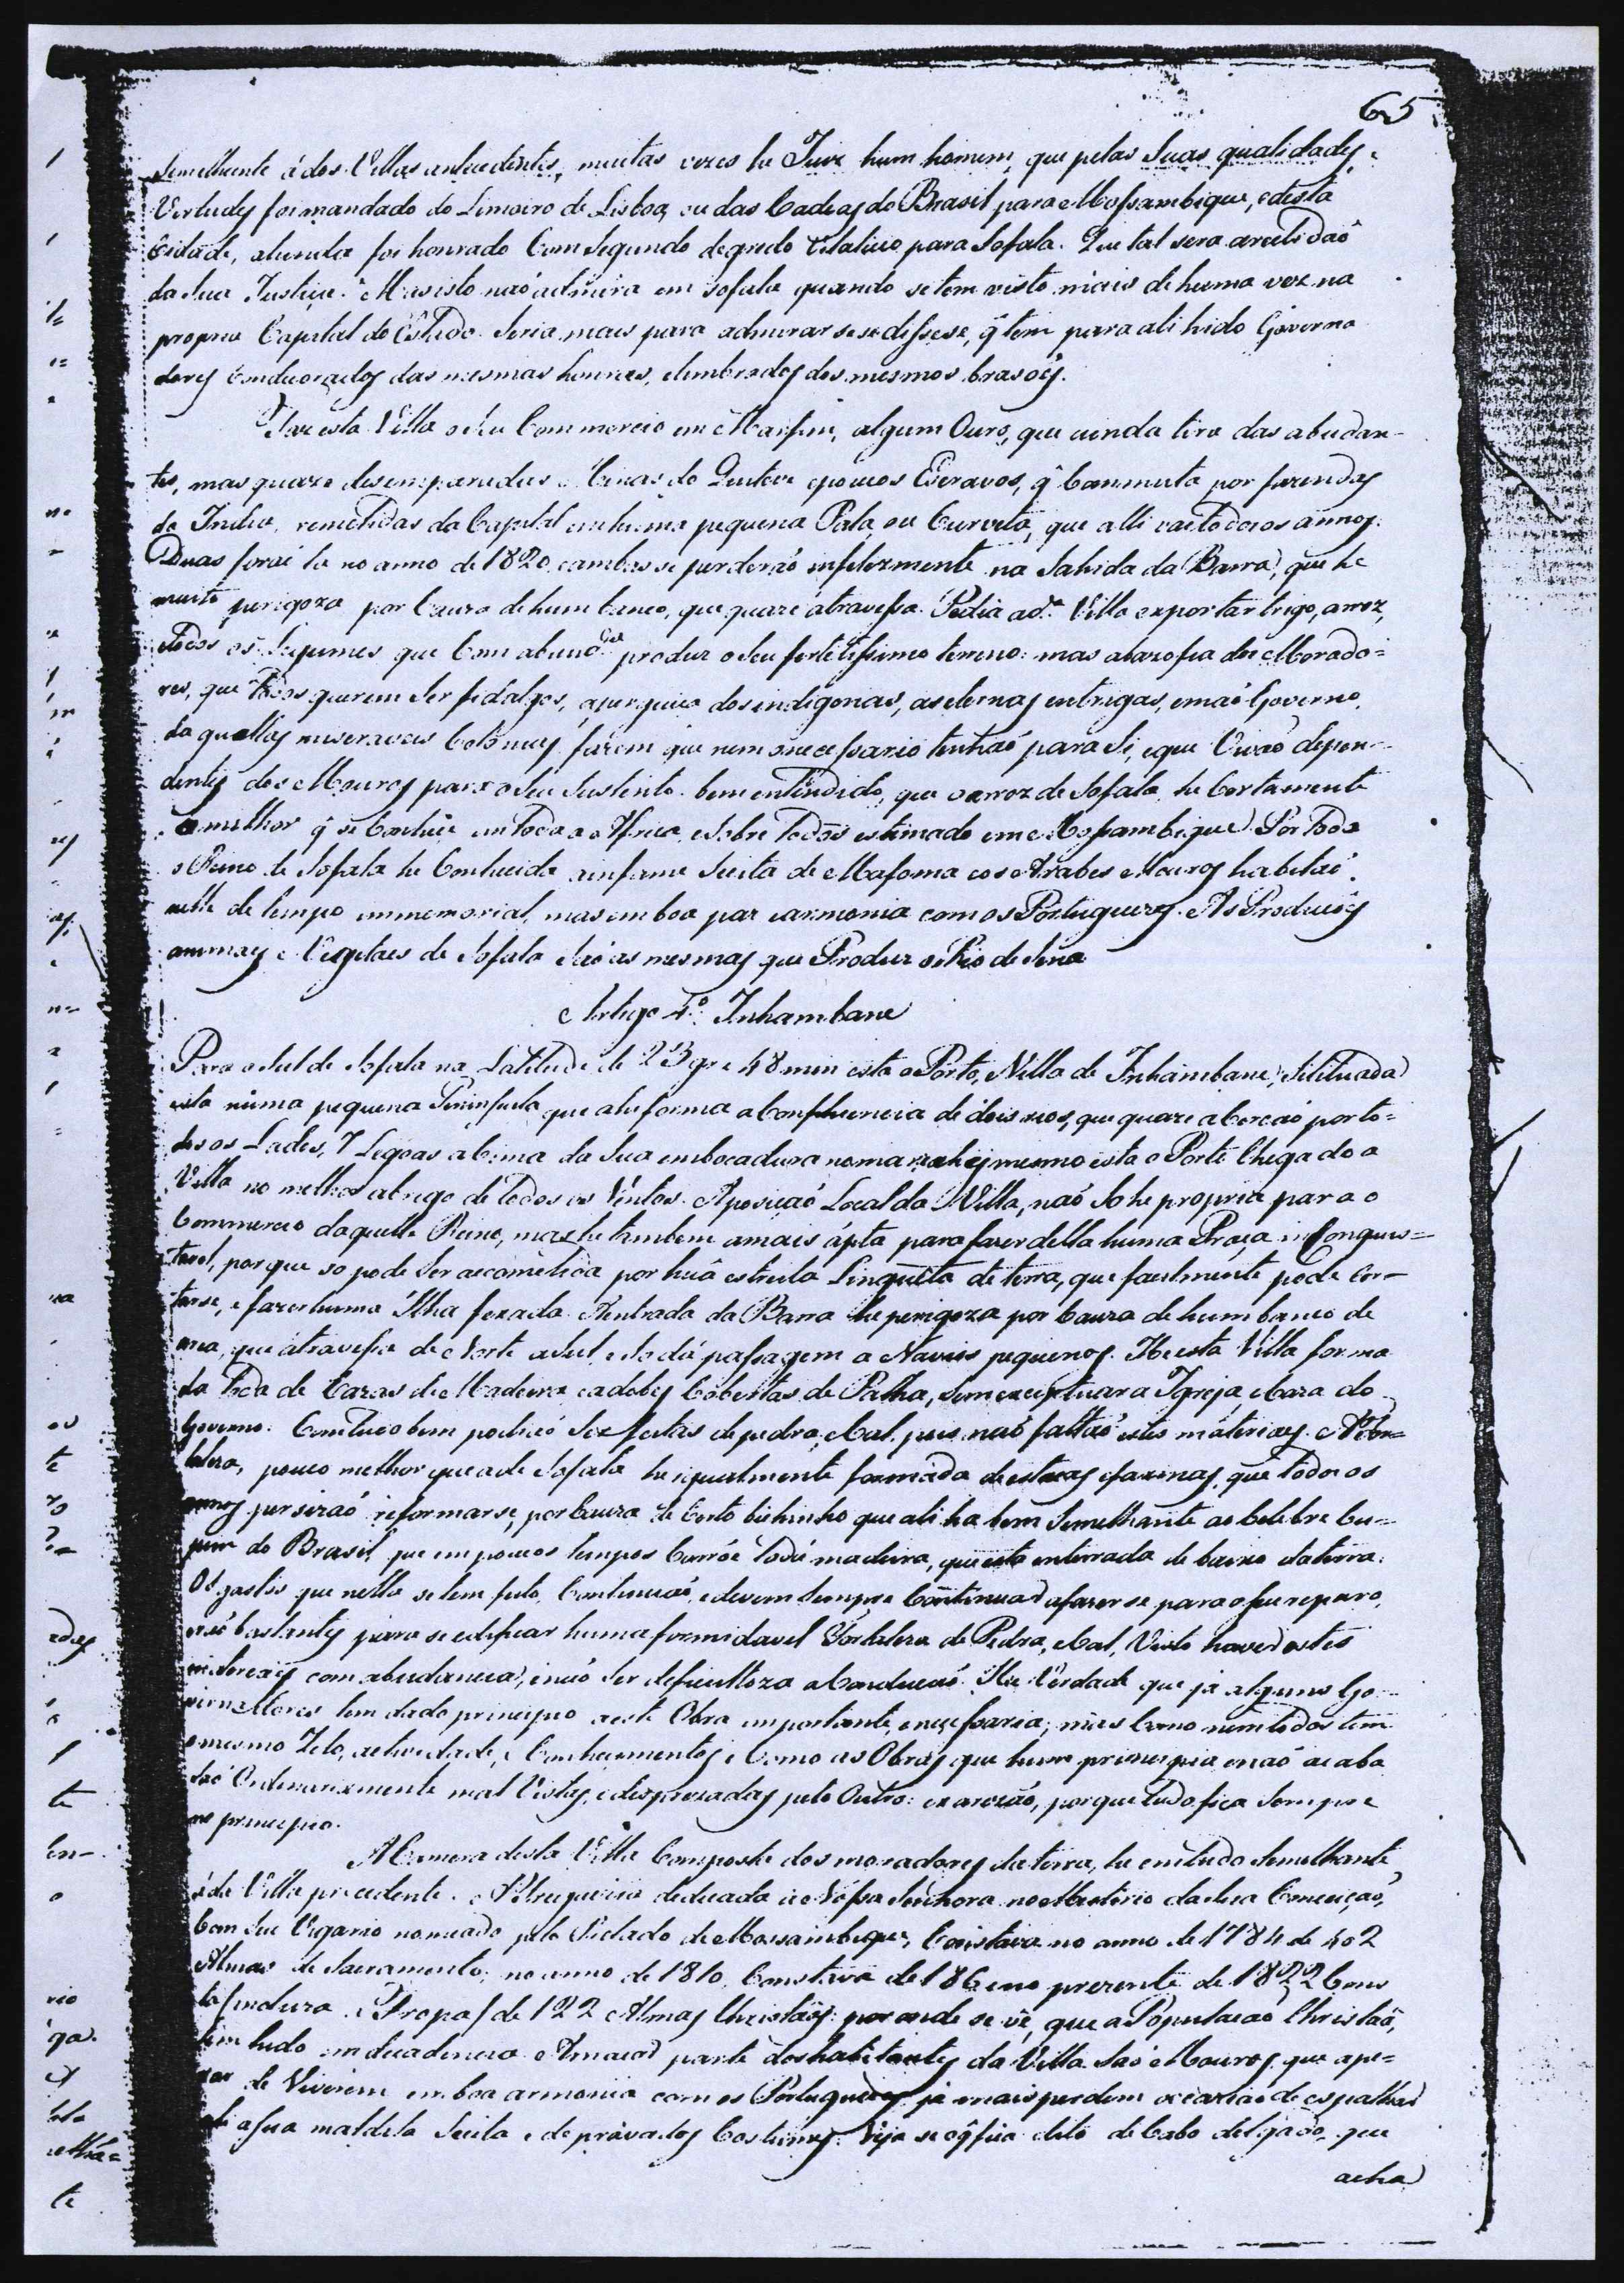 65
semelhante á dos Villas antecedentes, muitas vezes he Juiz hum homem, que pelas Suas qualidades, e
Vertudes foi mandado do Limoiro de Lisboa, ou das Cadeas do Brasil para Mossambique, e desta
Cidade, ainda foi honrado Com Segundo degredo para Sofala. Que tal sera arectidaõ
da Sua Justiça. Mas isto naõ admira em Sofala quando se tem visto mais de huma vez na
propria Capital do Estado. Seria mais para admirar se se dissese, q̃ tem para ali hido Governa
dores Condecorados das mesmas honras, elembrados dos mesmos brasoẽs.
Faz esta Villa o Seu Commercio em Marfim, algum Ouro, que ainda tira das abudan-
tes, mas quaze desemparadas Minas do Quiteve epoucos Escravos, q̃ Commuta por fazendas
da India, remetidas da Capital em huma pequena Pala, ou Curveta, que alli vai todos os annos.
Duas foraõ la no anno de 1820. eambas se perderaõ infelizmente na Sahida da Barra, que he
muito perigoza por Cauza de hum banco, que quaze atravessa. Podia a d.ª Villa exportar trigo, arroz,
etodos os Legumes que Com abund.ª produz o Seu fertelissimo terreno: mas abazofia dos Morado=
res, que Todos querem Ser fidalgos, aperguiça dos indigenas, as eternas entrigas, emaõ Governo
daquellas miseraveis Colonias, fazem que nem onecessario tenhaõ para Si, eque Vivaõ depen-
dentes dos Mouros para o Seu Sustento. bem entendido, que o arroz de Sofala, he Certamente
omelhor q̃ se Conhece em Toda a Africa, eSobre Todos estimado em Mossambique. Por Todo
o Reino de Sofala he Conhecida ainfame Seita de Mafoma eos Arabes Mouros habitaõ
nelle de tempo immemorial, mas em boa paz earmonia com os Portuguezes. As Producoẽs
animaes e Vegetaes de Sofala Saõ as mesmas que Produz o Rio de Sena
Artigo 4.º Inhambane
Para o Sul de Sofala na Latitude de 23 gr e 48 min esta o Porto, eVilla de Inhambane, Sitituada
esta numa pequena Peninsula que ahi forma aConfluencia de dois rios, que quaze a Cercaõ por to=
dos os Lados, 7 Legoas aCima da Sua embocadura mesmo esta o Porto Chegado a
Villa no melhor abrigo de Todos os Ventos. Aposiçaõ Local da Villa, naõ So he propria para o
Commercio daquelle Reino, mas he tambem amais ápta para fazer della huma Praça inConquis=
tavel, porque so pode Ser acometida por huã estreita Linguêta de terra, que facilmente pode Cor-
tarse, e fazer huma Ilha fexada. Aentrada da Barra he perigoza por Cauza de hum banco de
area, que atravessa de Norte aSul eSo dá passagem a Navios pequenos. He esta Villa forma
da Toda de Cazas de Madeira eadobes Cobertas de Palha, Sem exceptuar a Igreja, eCaza do
Governo. Comtudo bem podiaõ Ser feitas de pedra, eCal, pois naõ faltaõ estes materiaes. A For=
taleza, pouco melhor que a de Sofala he igualmente formada de estacas efaxinas, que Todos os
annos persizaõ reformarse, por Cauza de Certo bichinho que ali ha bem Semelhante ao Celebre Cu=
pim do Brasil, que em poucos tempos Corróe Toda madeira, que esta enterrada de baixo da terra.
Os gastos que nella se tem feito, Continuaõ, edevem Sempre Continuar afazer se para o seu reparo,
eraõ bastantes para se edificar huma formidavel Fortaleza de Pedra, eCal, Visto haver estes
materiaes com abudancia, enaõ Ser deficultoza aConducaõ. He Verdade que já alguns Go-
vernadores tem dado principio aesta Obra importante, enecessaria; mas Como nem todos tem
omesmo Zelo, actividade, e Conhecimentos, e Como as Obras que hum principia enaõ acaba
Saõ Ordenariamente mal Vistas, edesprezadas pelo Outro: porque Tudo fica Sempre
no principio.
A Camera desta Villa Composta dos moradores da terra, he em tudo Semelhante
á da Villa precedente. A Freguezia dedicada a Nossa Senhora no Misterio da Sua Conceicaõ,
Com Seu Vigario nomeado pelo Prelado de Mossambique, Constava no anno de 1784 de 402
Almas de Sacramento; no anno de 1810. Constava de 186 eno prezente de 1822 Cons
ta de 122 Almas Christãs: por onde se vê, que a Populacaõ Christaã,
tem hido em decadencia. Amaior parte dos habitantes da Villa Saõ Mouros, que ape=
zar de Viverem em boa armonia com os Portuguezes já mais perdem occaziaõ de espalhar
ali asua maldita Seita, e depravados Costumes. Veja se oq̃ fica dito de Cabo delgado, que
acha